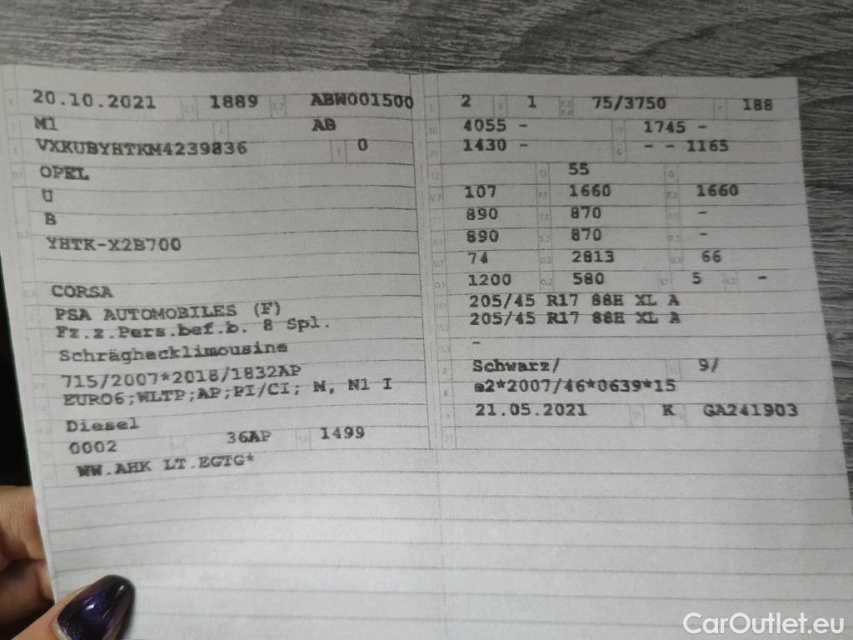 20.10.2021 1889 ABW001500
M1 AB
VXKUBYHTKM4239836 0
OPEL
U
B
YHTK-X2B700
CORSA
PSA AUTOMOBILES (F)
Fz.z.Pers.bef.b. 8 Spl.
Schräghecklimousine
715/2007*2018/1832AP
EURO6;WLTP;AP;PI/CI; M, N1 I
Diesel
0002 36AP 1499
WW.AHK LT.EGTG*
2 1 75/3750 188
4055 - 1745 -
1430 - - - 1165
55
107 1660 1660
890 870 -
890 870 -
74 2813 66
1200 580 5 -
205/45 R17 88H XL A
205/45 R17 88H XL A
-
Schwarz/ 9/
e2*2007/46*0639*15
21.05.2021 K GA241903
CarOutlet.eu